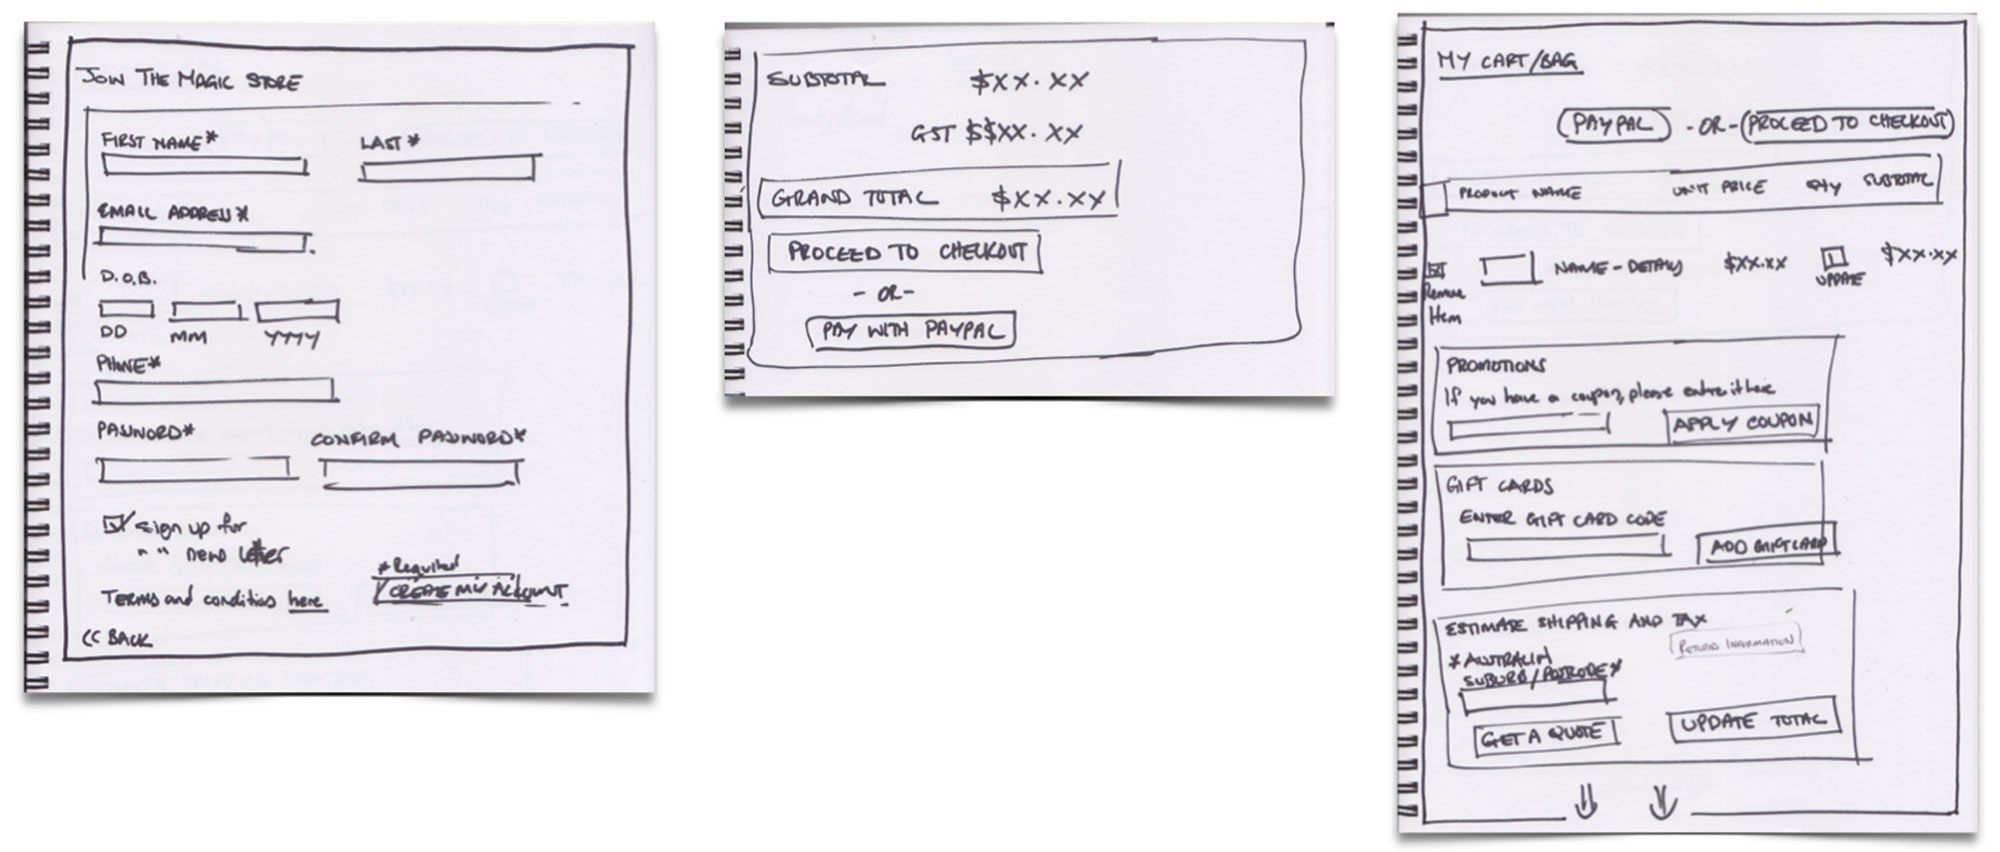 JOIN THE MAGIC STORE
FIRST NAME* LAST*
EMAIL ADDRESS*
D.O.B.
DD MM YYYY
PHONE*
PASSWORD* CONFIRM PASSWORD*
Sign up for
" " news letter
*Required
Terms and conditions here CREATE MY ACCOUNT
<< BACK
SUBTOTAL $XX.XX
GST $$XX.XX
GRAND TOTAL $XX.XX
PROCEED TO CHECKOUT
- OR -
PAY WITH PAYPAL
MY CART/BAG
PAYPAL - OR - PROCEED TO CHECKOUT
PRODUCT NAME UNIT PRICE QTY SUBTOTAL
NAME - DETAILS $XX.XX 1 $XX.XX
UPDATE
Remove
Item
PROMOTIONS
If you have a coupon, please enter it here
APPLY COUPON
GIFT CARDS
ENTER GIFT CARD CODE
ADD GIFT CARD
ESTIMATE SHIPPING AND TAX
RETURN INFORMATION
*AUSTRALIA
SUBURB/POSTCODE*
GET A QUOTE UPDATE TOTAL